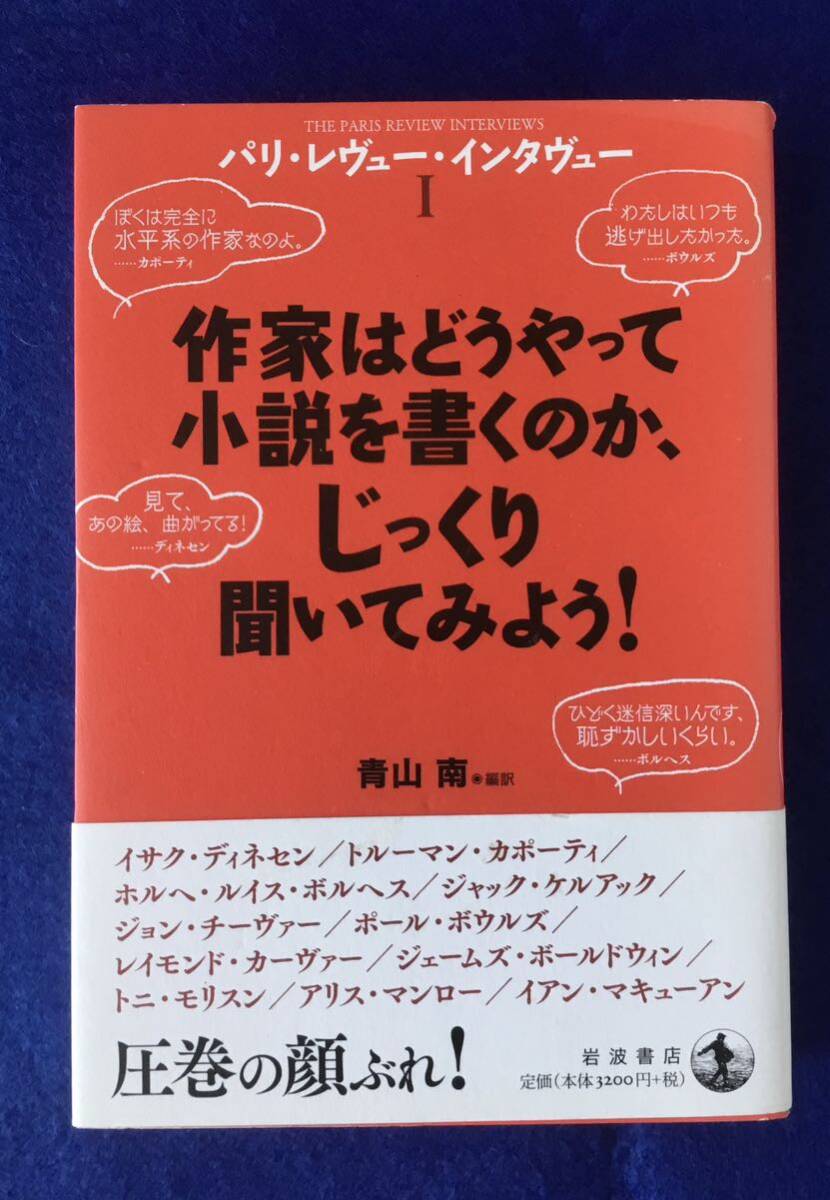 THE PARIS REVIEW INTERVIEWS
パリ・レヴュー・インタヴュー
I
ぼくは完全に
水平系の作家なのよ。
……カポーティ
わたしはいつも
逃げ出したかった。
……ボウルズ
作家はどうやって
小説を書くのか、
じっくり
聞いてみよう!
見て、
あの絵、曲がってる!
……ディネセン
ひどく迷信深いんです、
恥ずかしいくらい。
……ボルヘス
青山 南◉編訳
イサク・ディネセン/トルーマン・カポーティ/
ホルヘ・ルイス・ボルヘス/ジャック・ケルアック/
ジョン・チーヴァー/ポール・ボウルズ/
レイモンド・カーヴァー/ジェームズ・ボールドウィン/
トニ・モリスン/アリス・マンロー/イアン・マキューアン
圧巻の顔ぶれ!
岩波書店
定価(本体3200円+税)